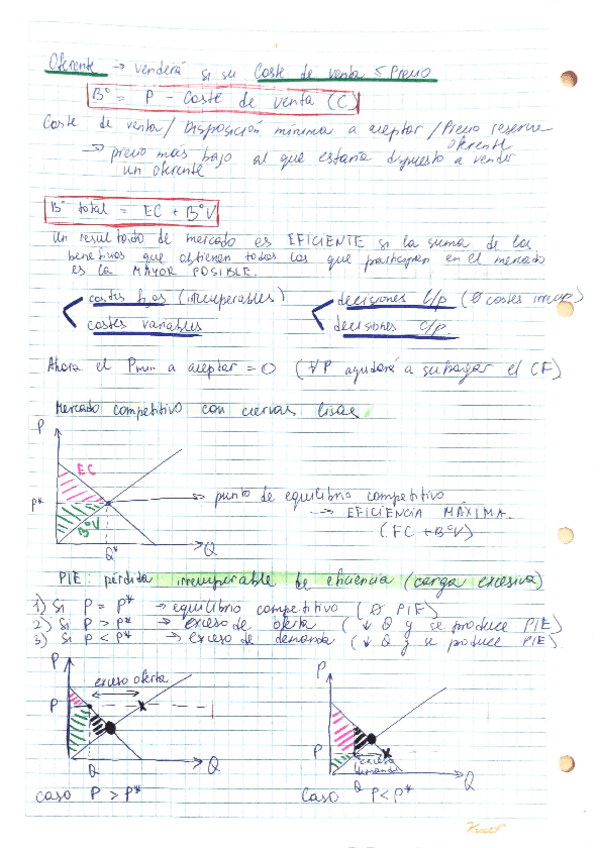 Oferente → venderá si su coste de venta ≤ Precio
Bº = P - Coste de venta (C)
Coste de venta / Disposición mínima a aceptar / Precio reserva oferente
→ precio más bajo al que estaría dispuesto a vender
un oferente
Bº total = EC + BºV
Un resultado de mercado es EFICIENTE si la suma de los
beneficios que obtienen todos los que participan en el mercado
es la MAYOR POSIBLE.
costes fijos (irrecuperables)
costes variables
decisiones l/p (∅ costes irrecup)
decisiones c/p.
Ahora el Pmin a aceptar = 0 (∀P ayudará a subsanar el CF)
Mercado competitivo con curvas lisas
P
EC
P*
BºV
Q*
Q
→ punto de equilibrio competitivo
→ EFICIENCIA MÁXIMA.
(EC + BºV)
PIE: pérdida irrecuperable de eficiencia (carga excesiva)
1) Si P = P* → equilibrio competitivo (∅ PIE)
2) Si P > P* → exceso de oferta (↓ Q y se produce PIE)
3) Si P < P* → exceso de demanda (↓ Q y se produce PIE)
P
exceso oferta
P
Q
Q
caso P > P*
P
P
exceso
demanda
Q
Q
Caso P < P*